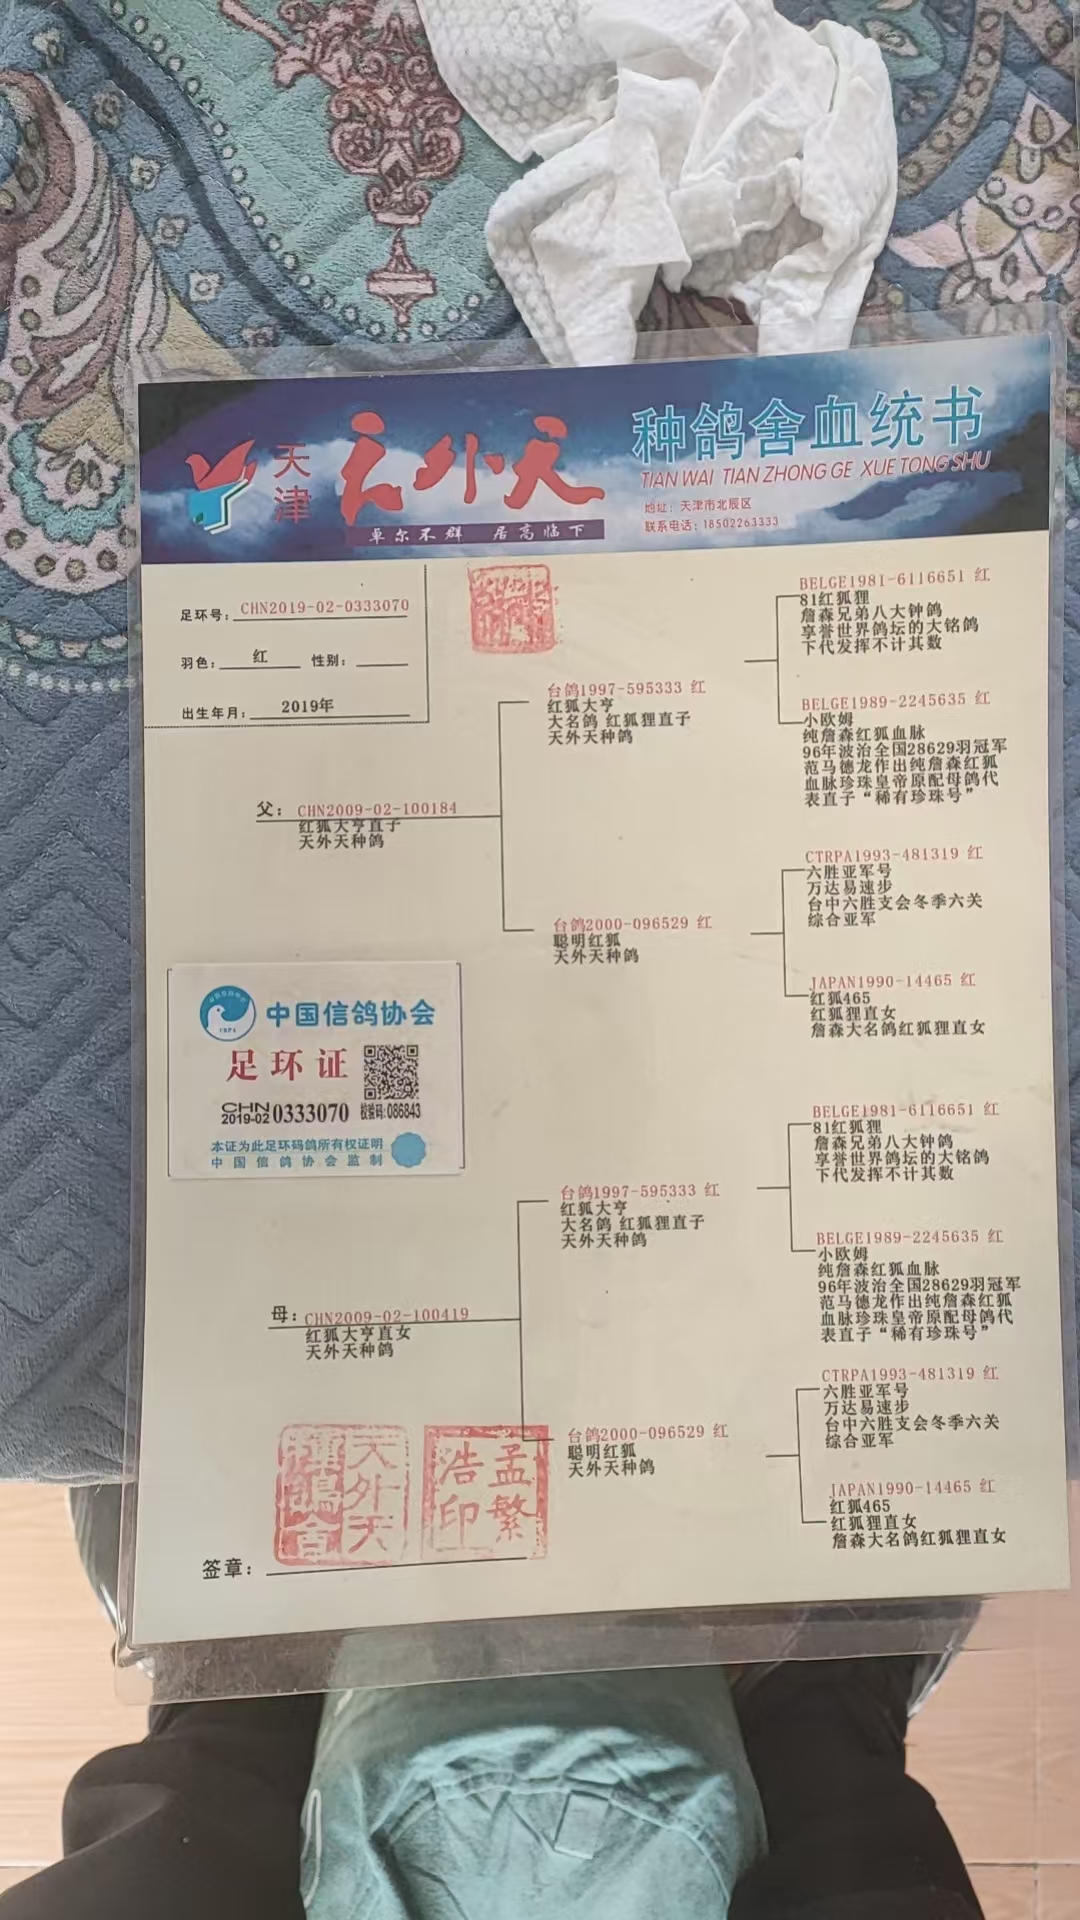 天津
云外天
卓尔不群 居高临下
种鸽舍血统书
TIAN WAI TIAN ZHONG GE XUE TONG SHU
地址：天津市北辰区
联系电话：18502263333
足环号：CHN2019-02-0333070
羽色：红 性别：
出生年月：2019年
父：CHN2009-02-100184
红狐大亨直子
天外天种鸽
台鸽1997-595333 红
红狐大亨
大名鸽 红狐狸直子
天外天种鸽
BELGE1981-6116651 红
81红狐狸
詹森兄弟八大钟鸽
享誉世界鸽坛的大铭鸽
下代发挥不计其数
BELGE1989-2245635 红
小欧姆
纯詹森红狐血脉
96年波治全国28629羽冠军
范马德龙作出纯詹森红狐
血脉珍珠皇帝原配母鸽代
表直子“稀有珍珠号”
台鸽2000-096529 红
聪明红狐
天外天种鸽
CTRPA1993-481319 红
六胜亚军号
万达易速步
台中六胜支会冬季六关
综合亚军
JAPAN1990-14465 红
红狐465
红狐狸直女
詹森大名鸽红狐狸直女
中国信鸽协会
足环证
CHN
2019-02 0333070 校验码:086843
本证为此足环码鸽所有权证明
中国信鸽协会监制
母：CHN2009-02-100419
红狐大亨直女
天外天种鸽
台鸽1997-595333 红
红狐大亨
大名鸽 红狐狸直子
天外天种鸽
BELGE1981-6116651 红
81红狐狸
詹森兄弟八大钟鸽
享誉世界鸽坛的大铭鸽
下代发挥不计其数
BELGE1989-2245635 红
小欧姆
纯詹森红狐血脉
96年波治全国28629羽冠军
范马德龙作出纯詹森红狐
血脉珍珠皇帝原配母鸽代
表直子“稀有珍珠号”
台鸽2000-096529 红
聪明红狐
天外天种鸽
CTRPA1993-481319 红
六胜亚军号
万达易速步
台中六胜支会冬季六关
综合亚军
JAPAN1990-14465 红
红狐465
红狐狸直女
詹森大名鸽红狐狸直女
天外天
種鴿舍
孟繁
浩印
签章：